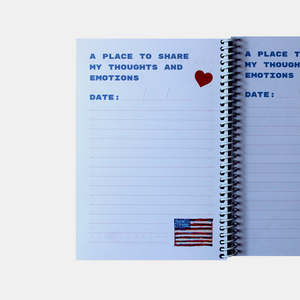 A PLACE TO SHARE
MY THOUGHTS AND
EMOTIONS
DATE: / /
A PLACE T
MY THOUGH
EMOTIONS
DATE: